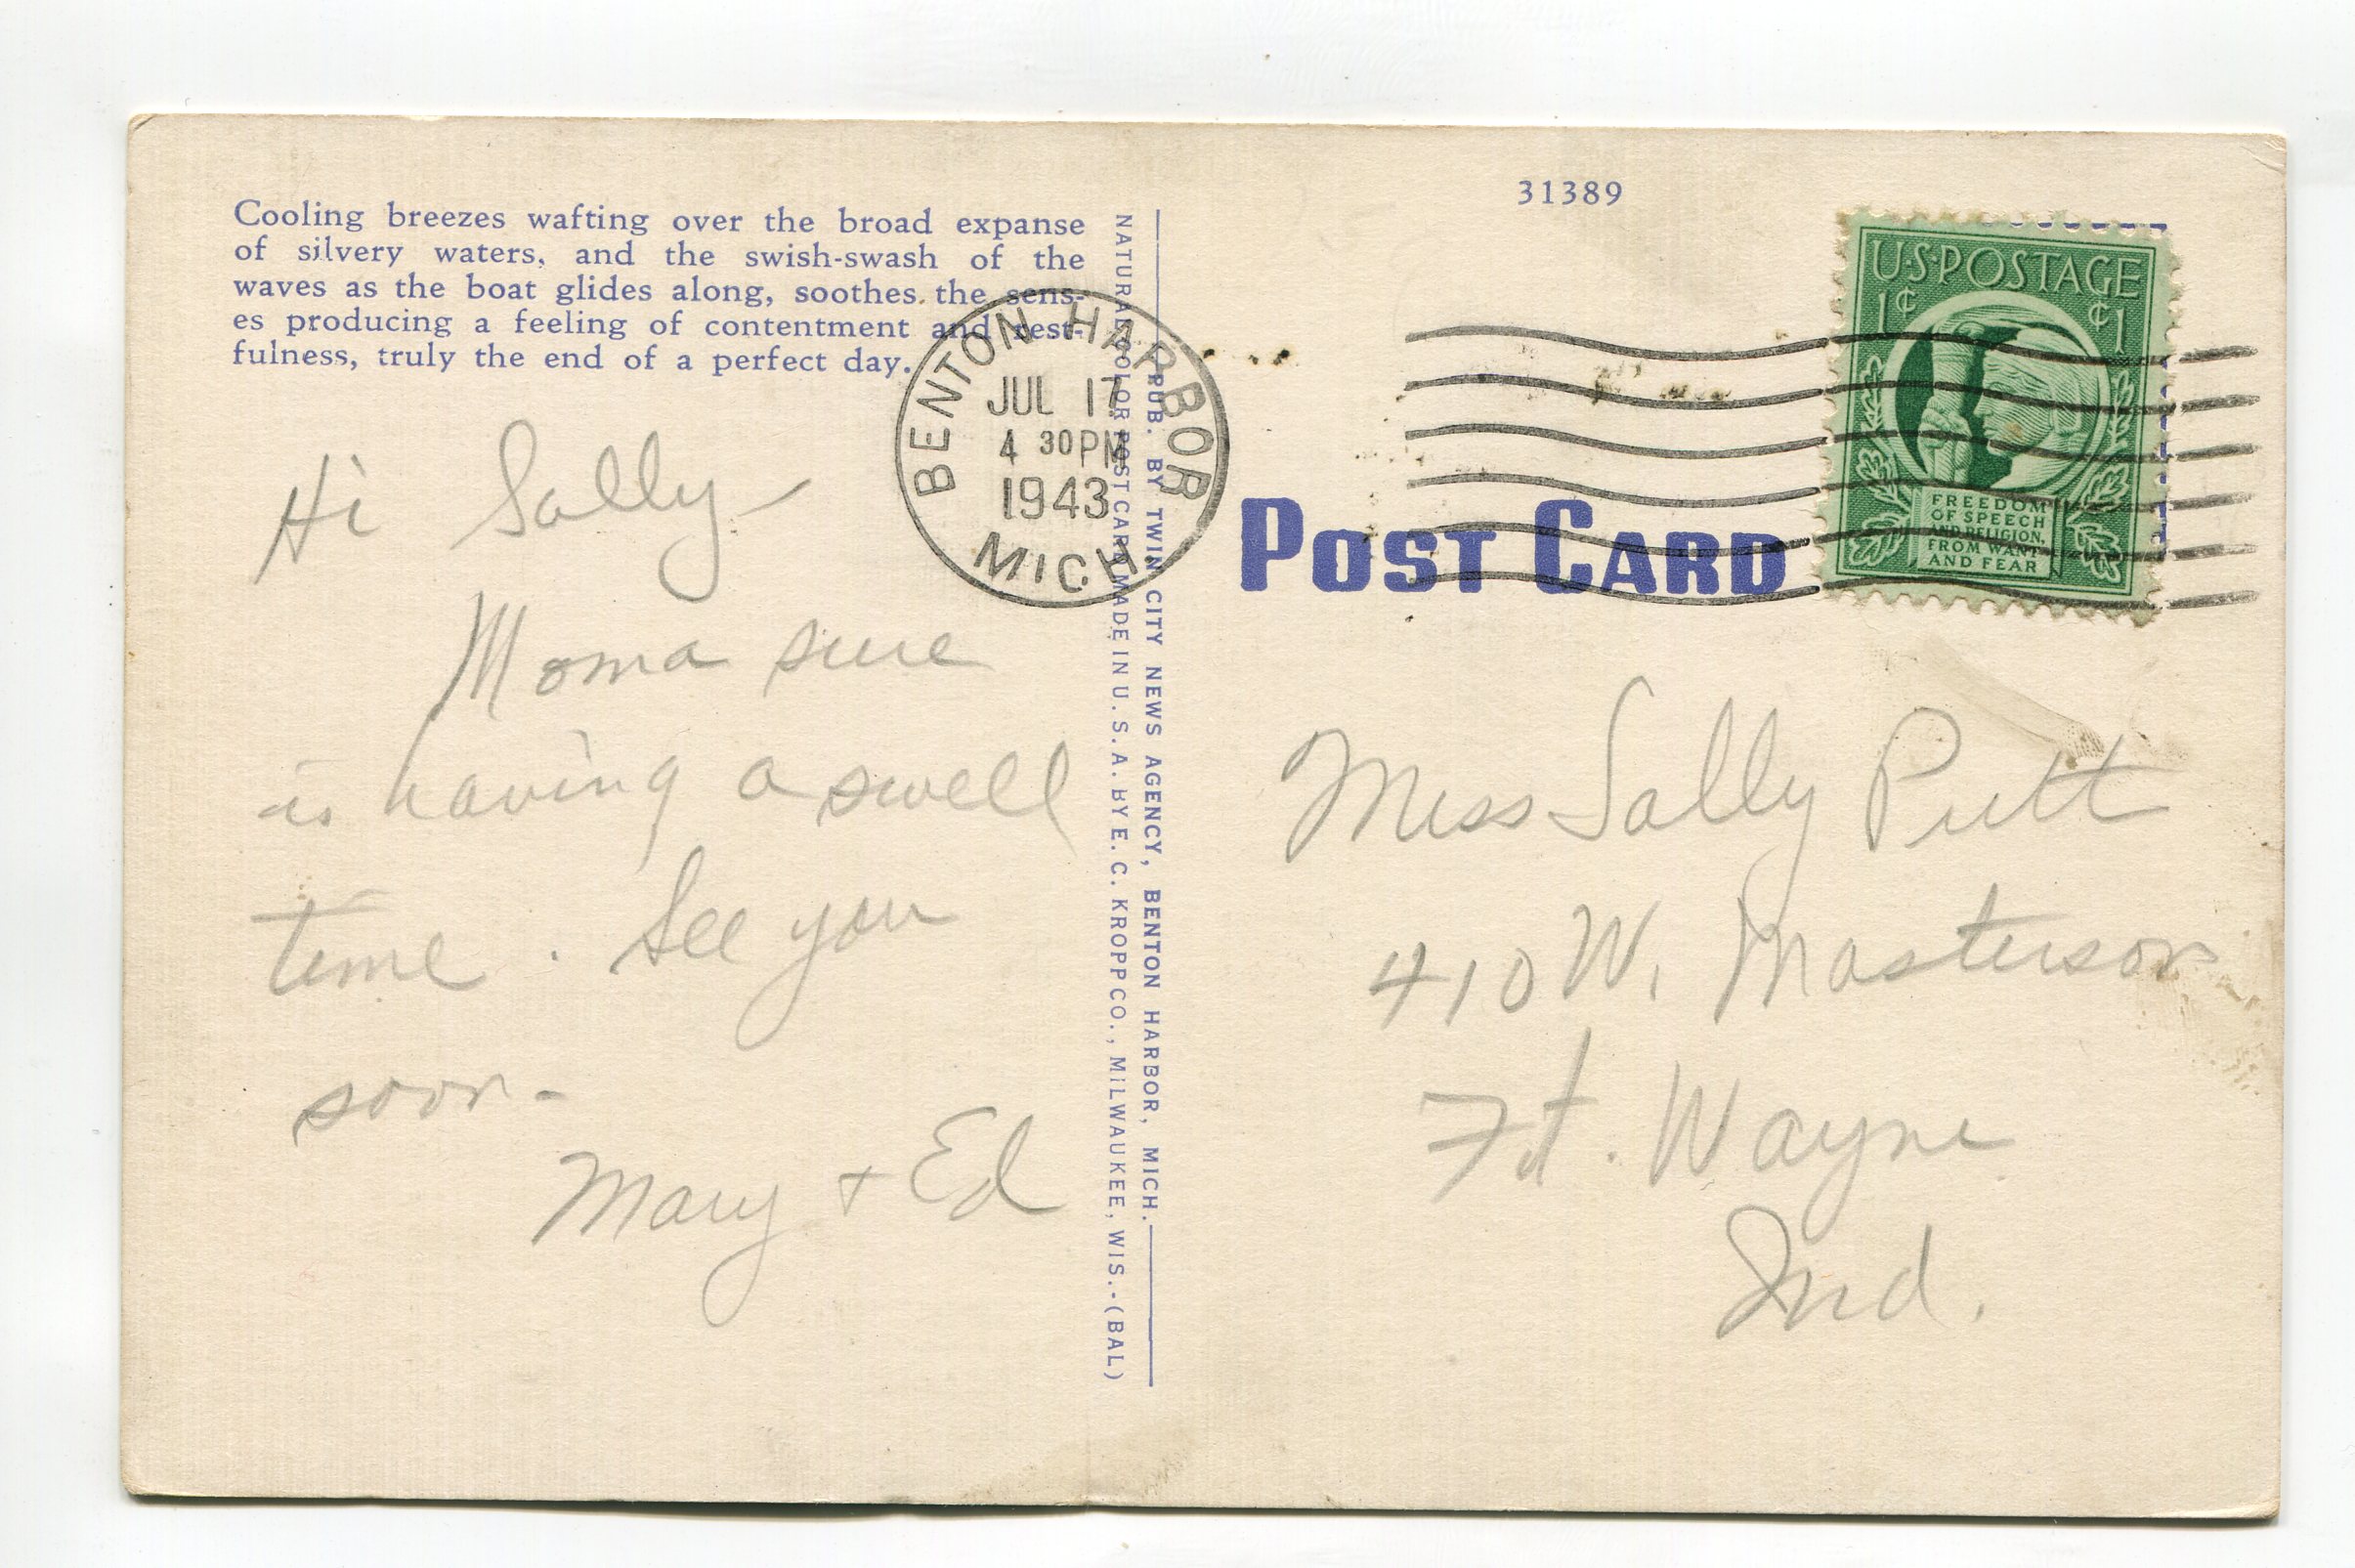 Cooling breezes wafting over the broad expanse
of silvery waters, and the swish-swash of the
waves as the boat glides along, soothes the sens-
es producing a feeling of contentment and rest-
fulness, truly the end of a perfect day.
Hi Sally -
Moma sure
is having a swell
time. See you
soon -
Mary + Ed
BENTON HARBOR
JUL 17
4 30PM
1943
MICH.
NATURAL COLOR POST CARD MADE IN U. S. A. BY E. C. KROPP CO., MILWAUKEE, WIS.-(BAL)
PUB. BY TWIN CITY NEWS AGENCY, BENTON HARBOR, MICH.
31389
POST CARD
U·S·POSTAGE
1¢ ¢1
FREEDOM
OF SPEECH
AND RELIGION,
FROM WANT
AND FEAR
Miss Sally Putt
410 W. Masterson
Ft. Wayne
Ind.